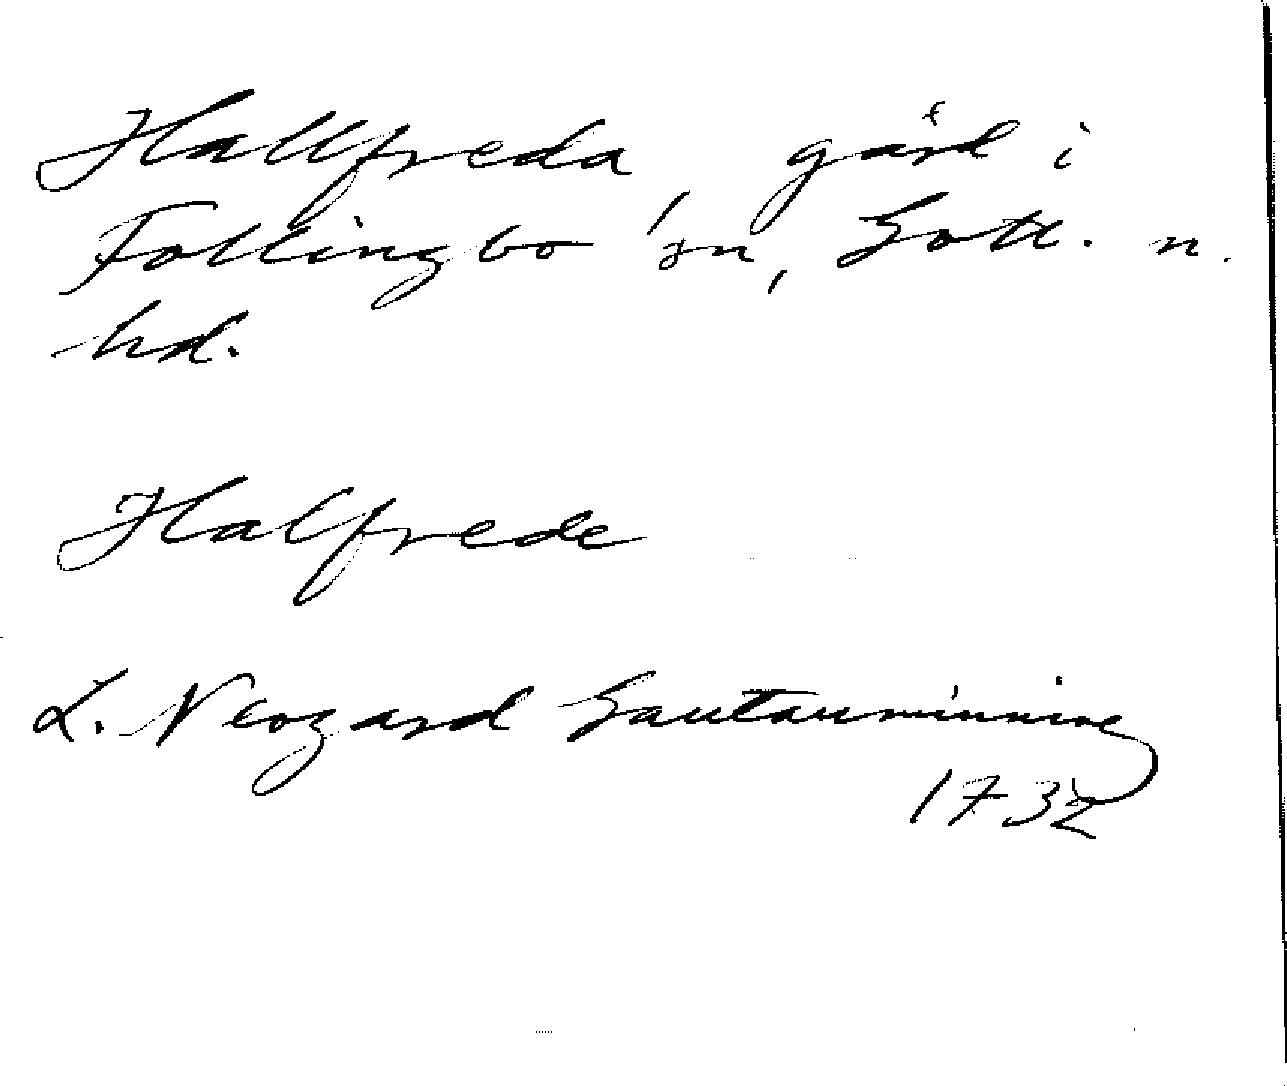 Hallfreda, gård i
Follingbo sn, Gotl. n.
hd.
Halfrede
L. Neogard Gautauminning
1732